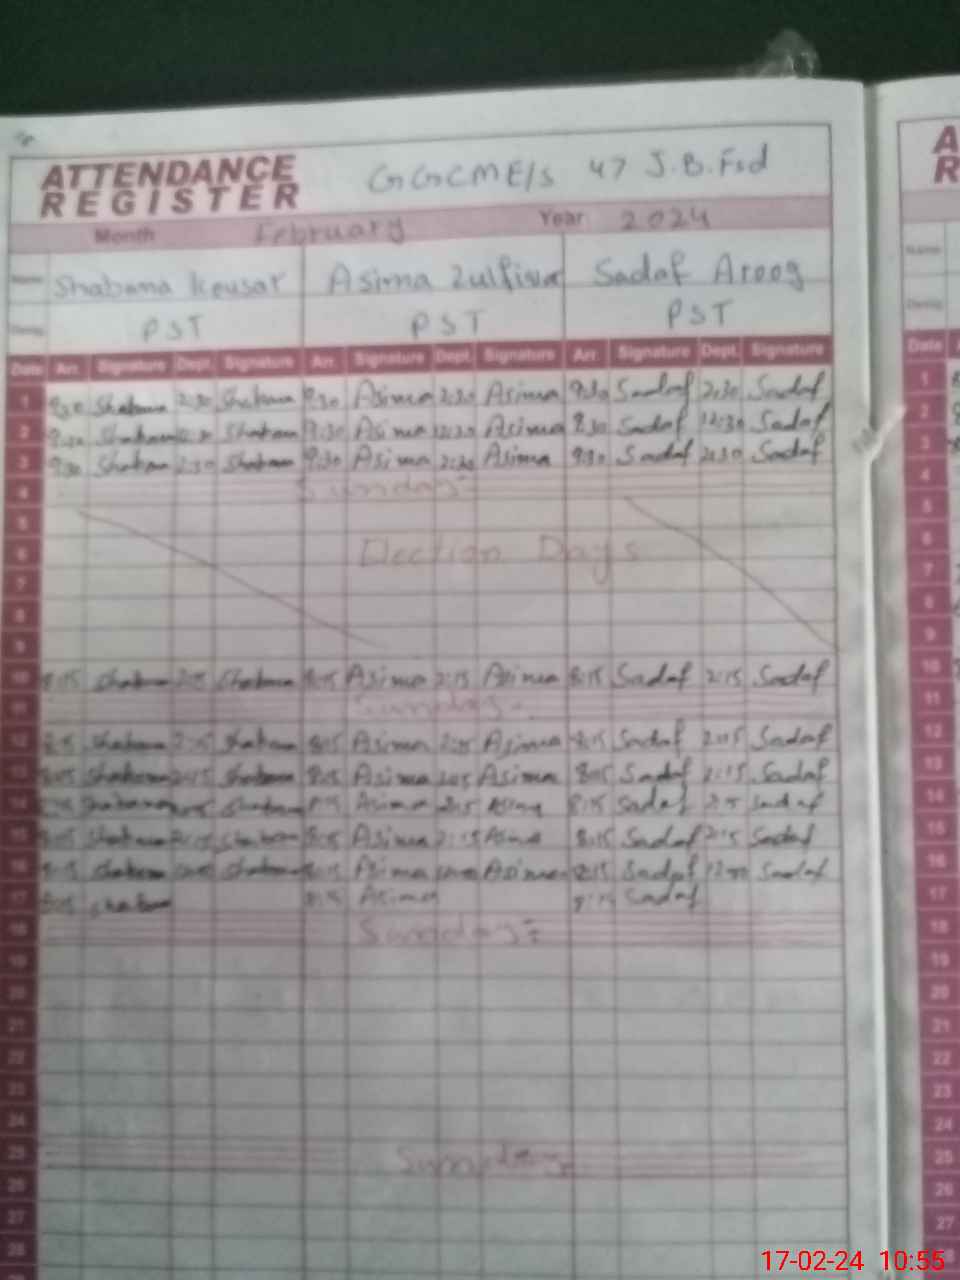 ATTENDANCE REGISTER GGCME/s 47 J.B. Fsd
Month February Year 2024
Name Shabana Kousar Asima Zulfiqar Sadaf Aroog
Desig PST PST PST
Date Arr. Signature Dept. Signature Arr. Signature Dept. Signature Arr. Signature Dept. Signature
1 9:30 Shabana 2:30 Shabana 9:30 Asima 2:30 Asima 9:30 Sadaf 2:30 Sadaf
2 9:30 Shabana 12:30 Shabana 9:30 Asima 12:30 Asima 9:30 Sadaf 12:30 Sadaf
3 9:30 Shabana 2:30 Shabana 9:30 Asima 2:30 Asima 9:30 Sadaf 2:30 Sadaf
4 Sunday
5
6 Election Days
7
8
9
10 8:15 Shabana 2:15 Shabana 8:15 Asima 2:15 Asima 8:15 Sadaf 2:15 Sadaf
11 Sunday
12 8:15 Shabana 2:15 Shabana 8:15 Asima 2:15 Asima 8:15 Sadaf 2:15 Sadaf
13 8:15 Shabana 2:15 Shabana 8:15 Asima 2:15 Asima 8:15 Sadaf 2:15 Sadaf
14 Shabana Shabana Asima 2:15 Asima 8:15 Sadaf 2:15 Sadaf
15 8:15 Shabana 2:15 Shabana 8:15 Asima 2:15 Asima 8:15 Sadaf 2:15 Sadaf
16 8:15 Shabana Shabana 8:15 Asima Asima 8:15 Sadaf Sadaf
17 8:15 Shabana 8:15 Asima 8:15 Sadaf
18 Sunday
19
20
21
22
23
24
25 Sunday
26
27
28
A
R
Name
Desig
Date
1
2
3
4
5
6
7
8
9
10
11
12
13
14
15
16
17
18
19
20
21
22
23
24
25
26
27
17-02-24 10:55